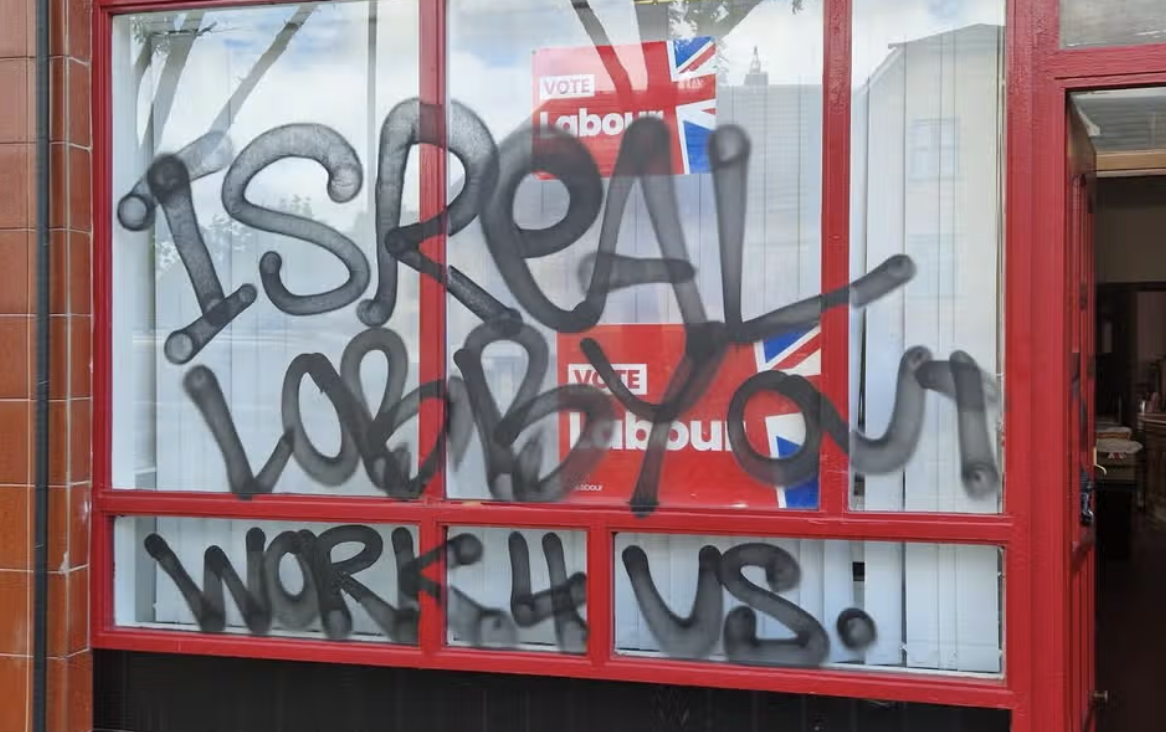 VOTE
Labour
ISReAL
VOTE
Labour
LOBBY Out
Labour
WORK 4 US.